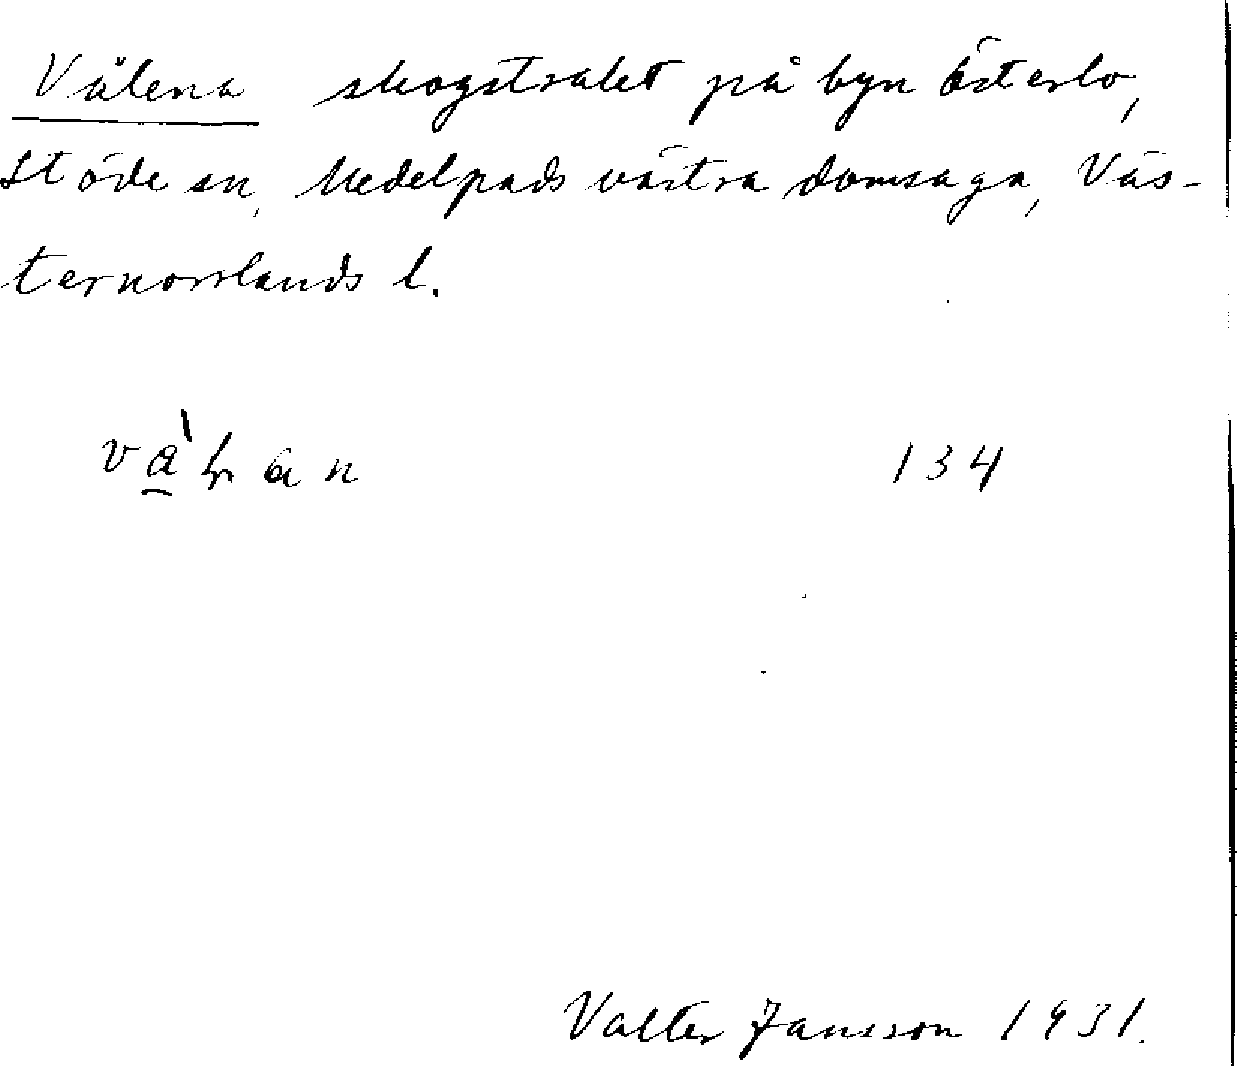 Vålena skogstrakt på byn Österlo,
Stöde sn, Medelpads västra domsaga, Väs-
ternorrlands l.
134
Valter Jansson 1931.